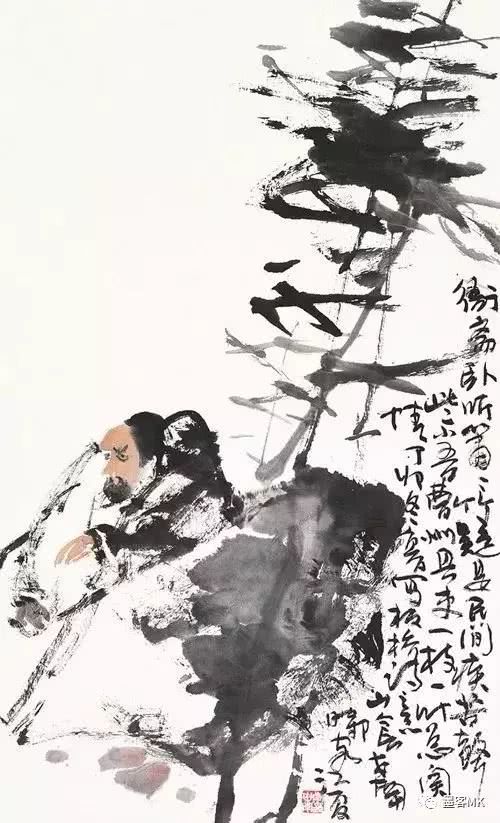 衙斋卧听萧々竹疑是民间疾苦声
些小吾曹州县吏一枝一叶总关
情丁卯冬写板桥诗意
墨客MK